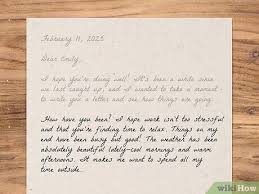 February 11, 2025
Dear Emily,
I hope you're doing well! It's been a while since
we last caught up, and I wanted to take a moment
to write you a letter and see how things are going.
How have you been? I hope work isn't too stressful
and that you're finding time to relax. Things on my
end have been busy but good. The weather has been
absolutely beautiful lately–cool mornings and warm
afternoons. It makes me want to spend all my
time outside.
wikiHow